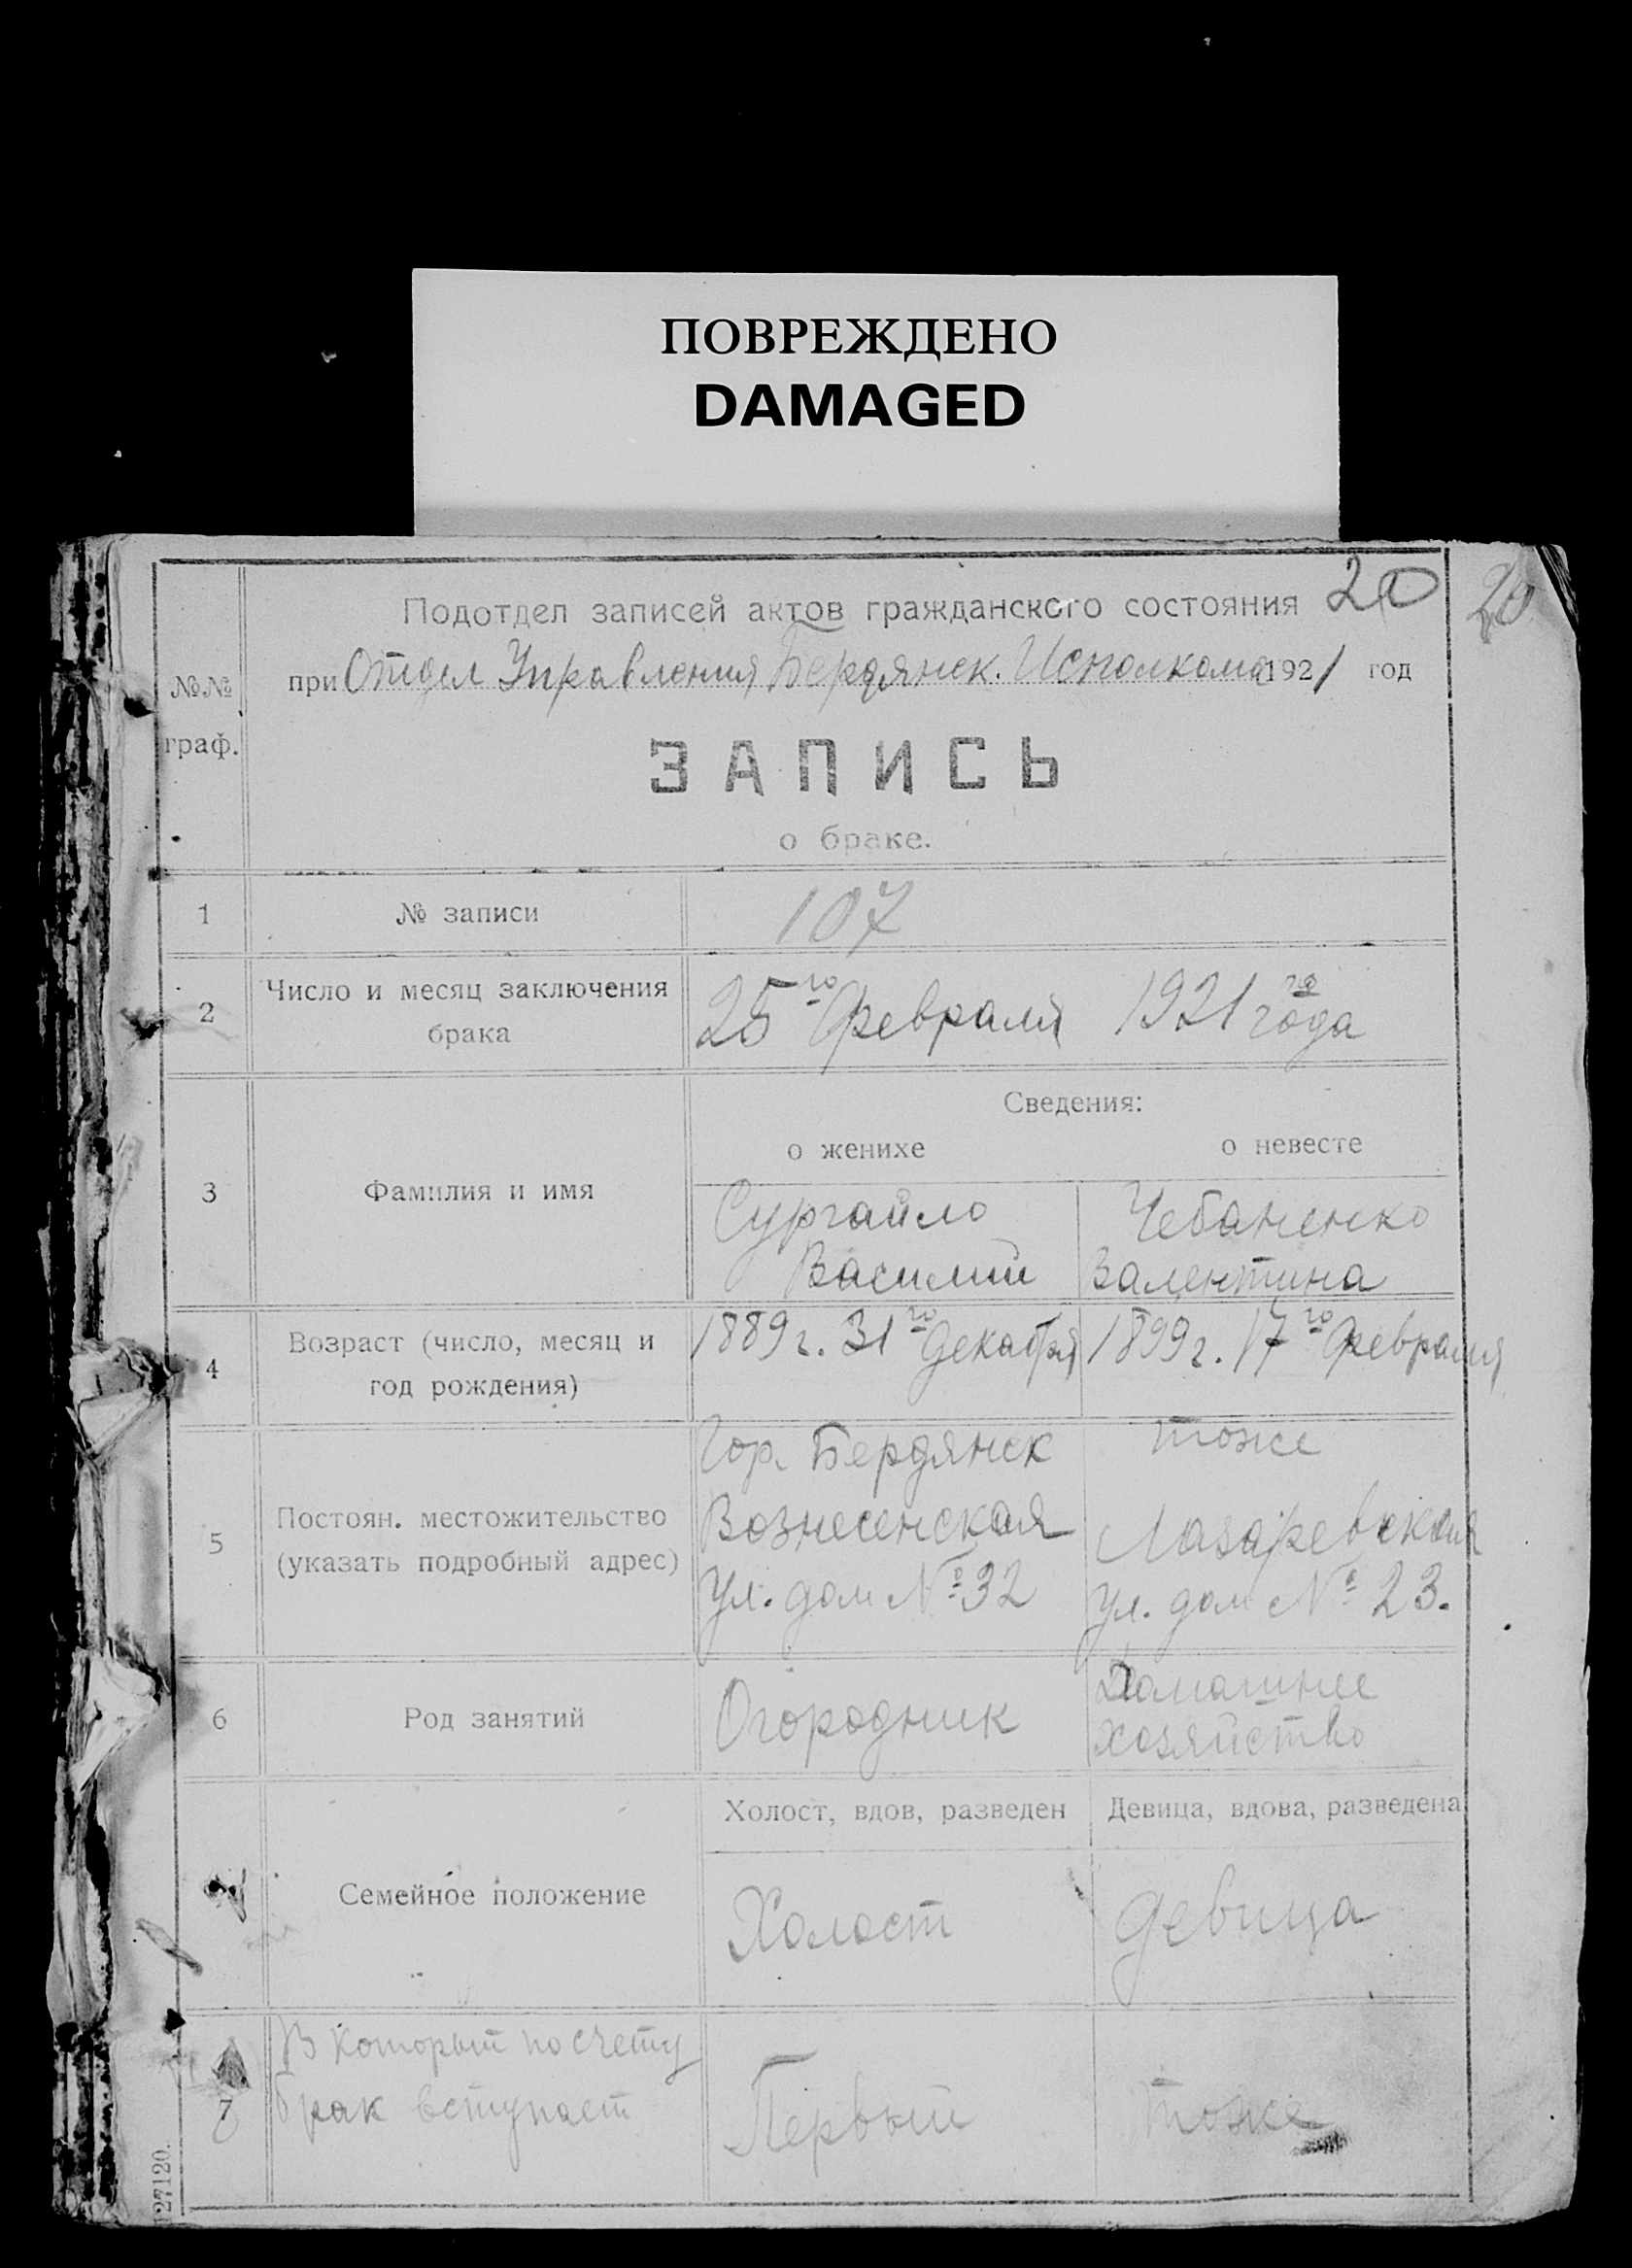 ПОВРЕЖДЕНО
DAMAGED
Подотдел записей актов гражданского состояния 20 20
при Отдел Управления Бердянск. Исполкома 1921 год
№№
граф.
ЗАПИСЬ
о браке.
1 № записи 107
2 Число и месяц заключения брака 25го Февраля 1921го года
Сведения:
о женихе о невесте
3 Фамилия и имя
Сургайло Чебаненко
Василий Валентина
4 Возраст (число, месяц и 1889г. 31го Декабря 1899г. 17го Февраля
год рождения)
Гор. Бердянск тоже
5 Постоян. местожительство Вознесенская Лазаревская
(указать подробный адрес) Ул. дом № 32 Ул. дом № 23.
6 Род занятий Огородник Домашнее
хозяйство
Холост, вдов, разведен Девица, вдова, разведена
Семейное положение Холост девица
В который по счету
7 брак вступает Первый тоже
27120.